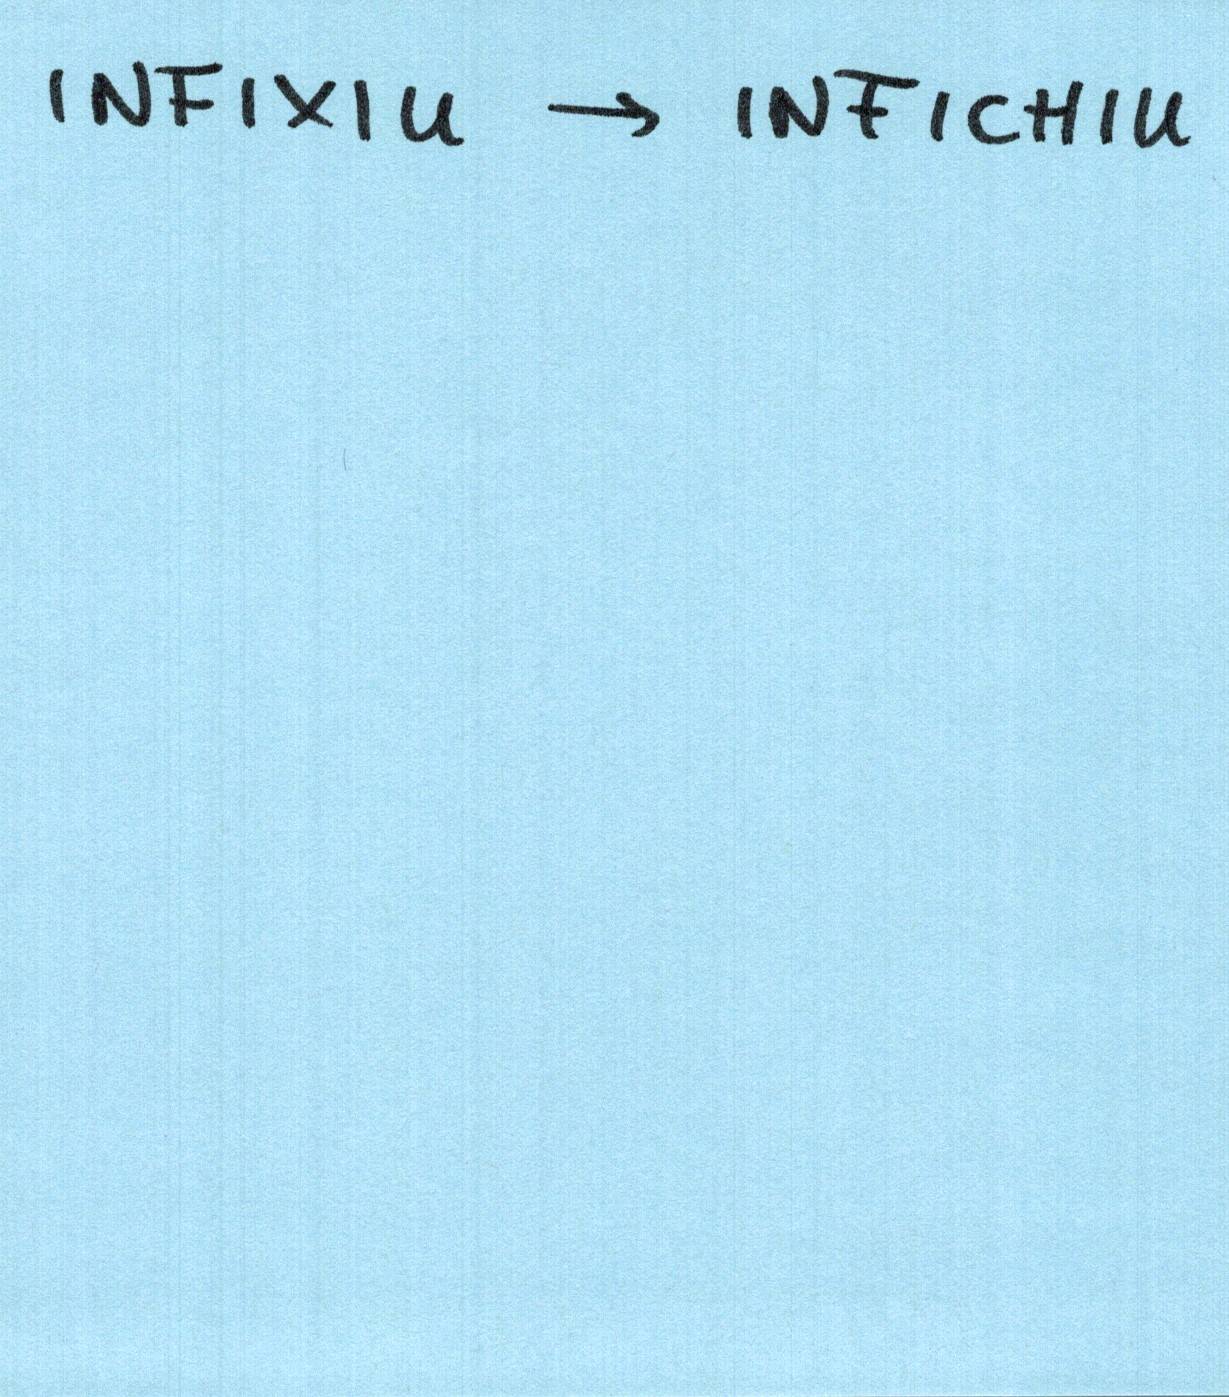 INFIXIU → INFICHIU